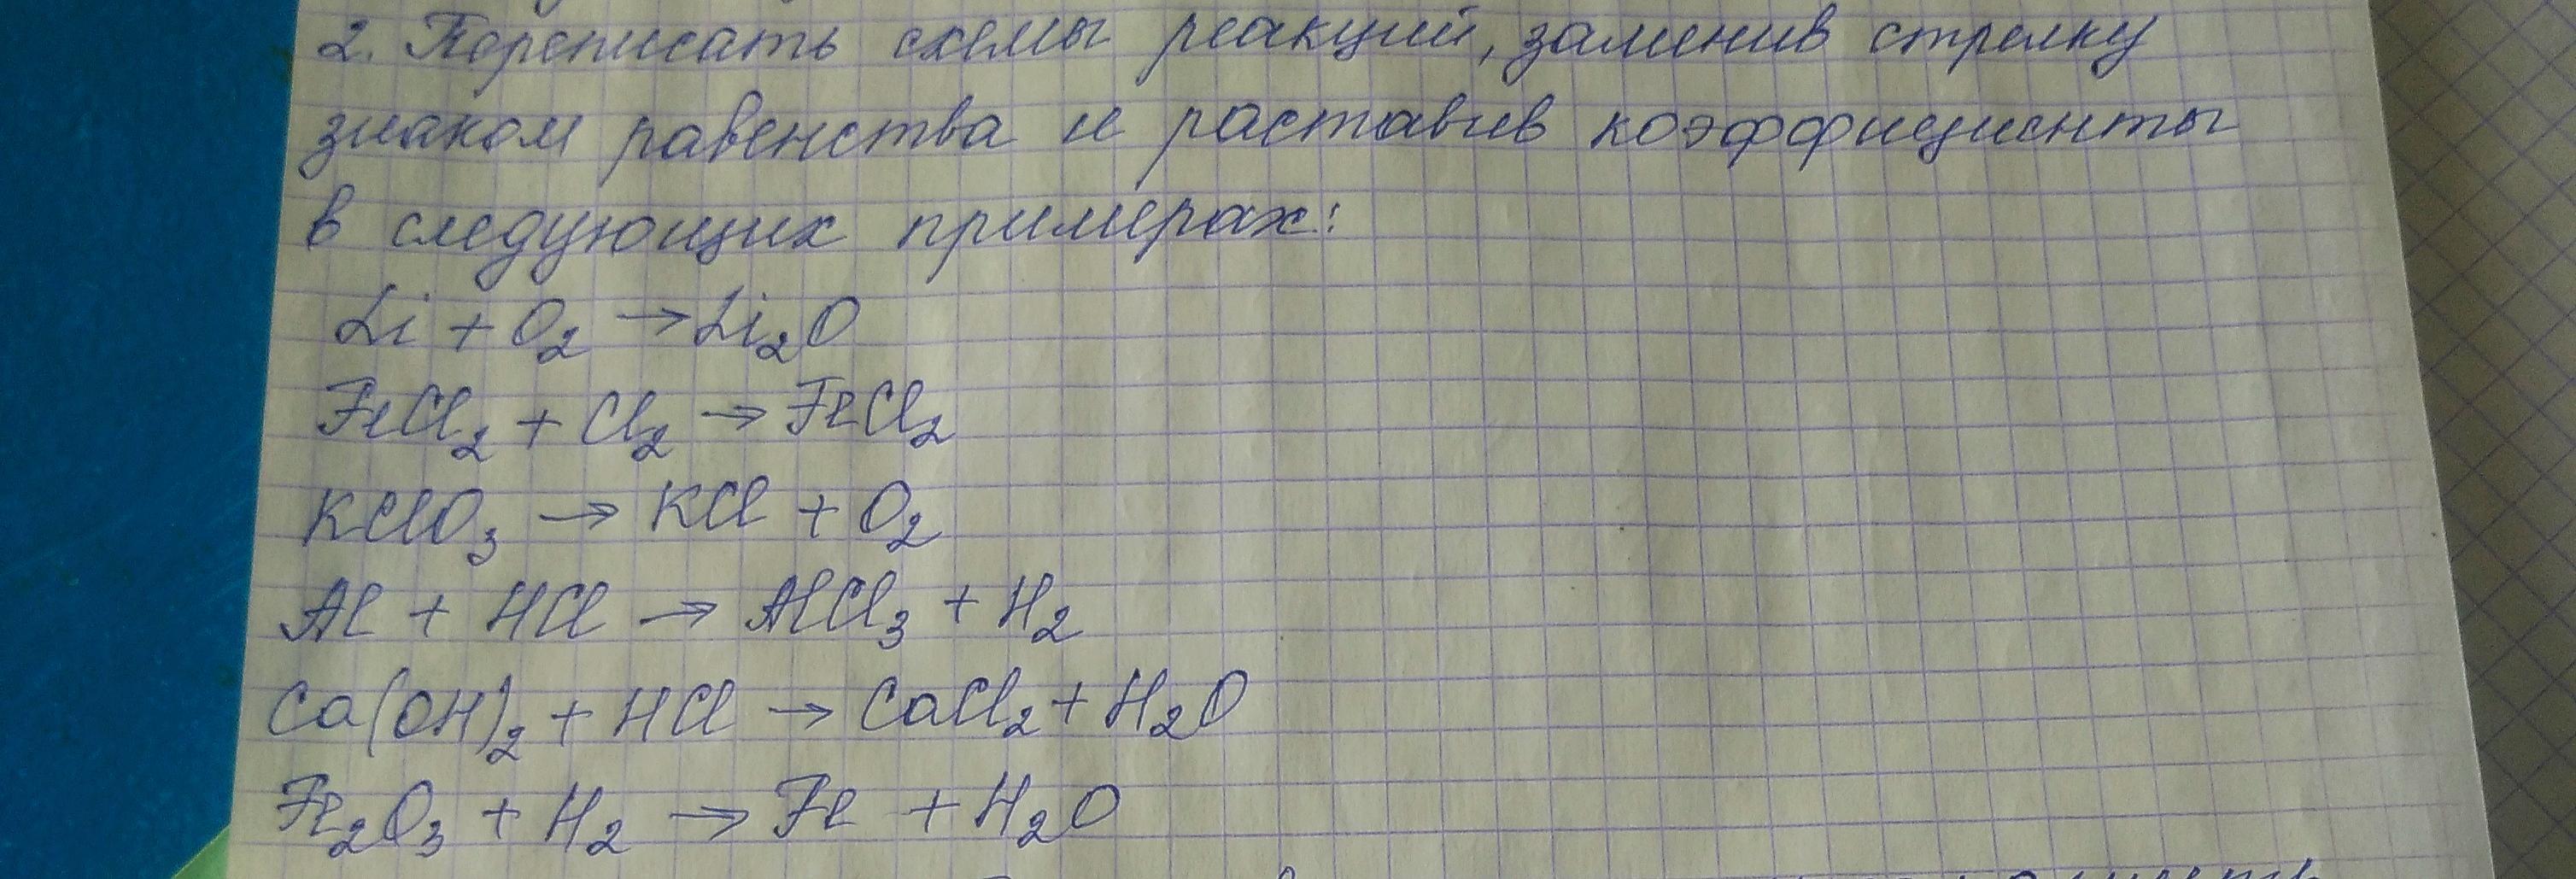 2. Переписать схемы реакций, заменив стрелку
знаком равенства и раставив коэффициенты
в следующих примерах:
Li + O₂ → Li₂O
FeCl₂ + Cl₂ → FeCl₂
KClO₃ → KCl + O₂
Al + HCl → AlCl₃ + H₂
Ca(OH)₂ + HCl → CaCl₂ + H₂O
Fe₂O₃ + H₂ → Fe + H₂O